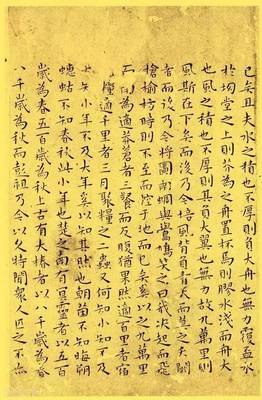 已矣且夫水之積不厚則其負大舟也無力覆盃水
於坳堂之上則芥為之舟置杯焉則膠水淺而舟大
也風之積也不厚則其負大翼也無力故九萬里則
風斯在下矣而後乃今培風背負青天而莫之夭閼
者而後乃今將圖南蜩與鷽鳩笑之曰我決起而飛
槍榆枋時則不至而控於地而已矣奚以之九萬里
而為適莽蒼者三飡而反腹猶果然適百里者宿
糧適千里者三月聚糧之二蟲又何知小知不及
知小年不及大年奚以知其然也朝菌不知晦朔
蟪蛄不知春秋此小年也楚之南有冥靈者以五百
歲為春五百歲為秋上古有大椿者以八千歲為春
八千歲為秋而彭祖乃今以久特聞衆人匹之不亦